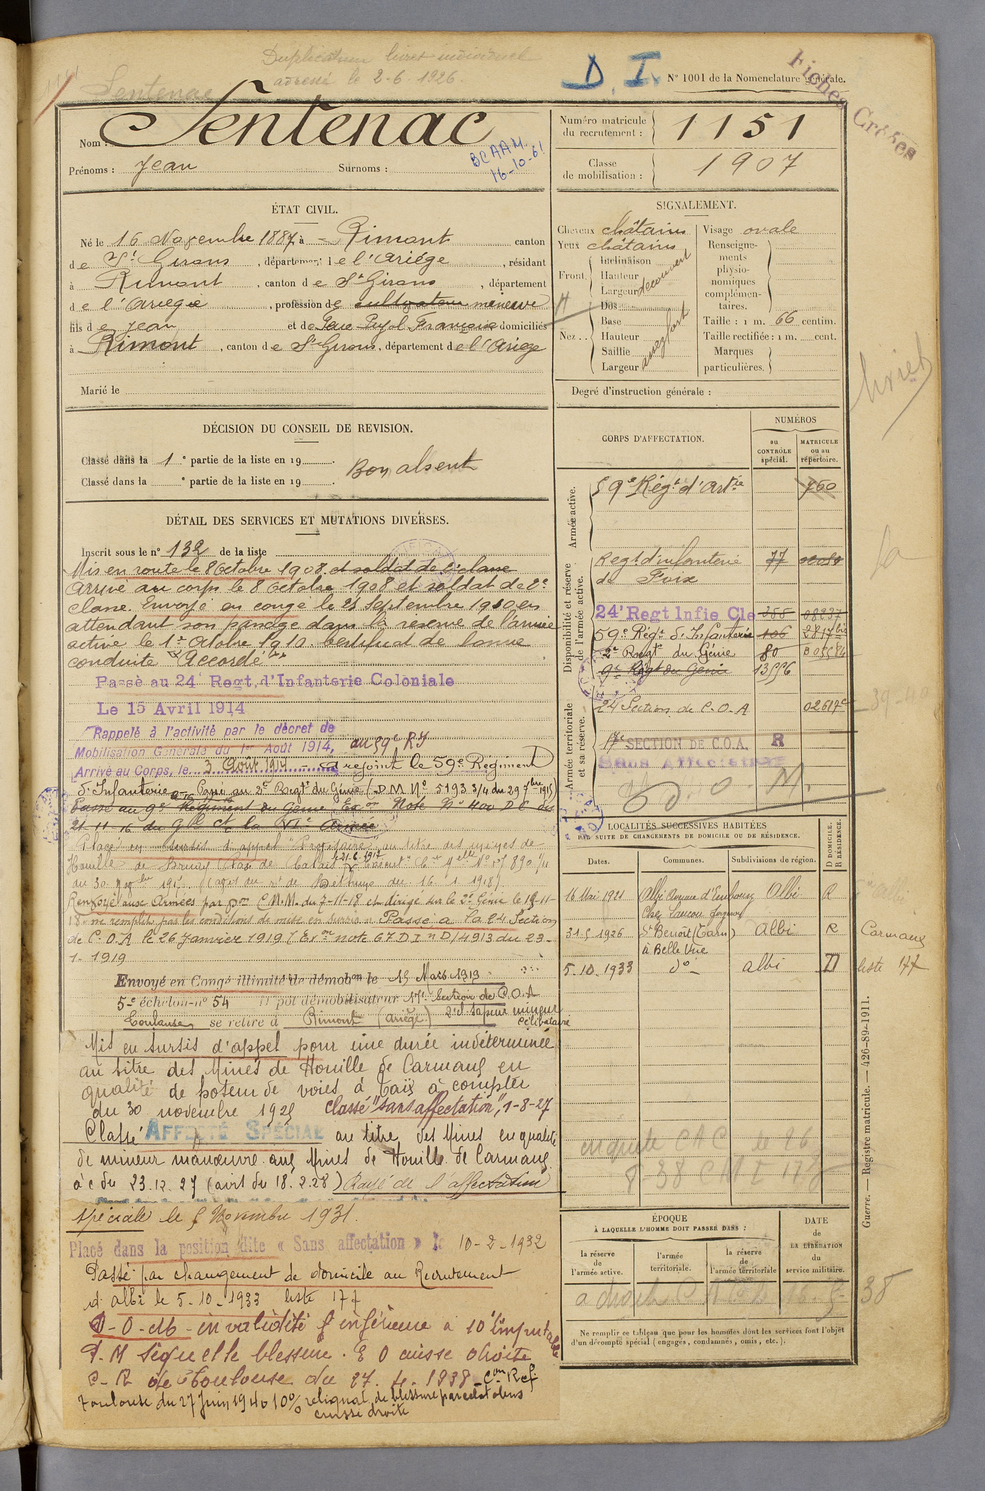 Duplicatum livret individuel
adressé le 2-6-1926.
Sentenac
D. I.
N° 1001 de la Nomenclature générale.
Fiches Croisées
Nom : Sentenac
Prénoms : Jean Surnoms :
BCAAM
16-10-61
Numéro matricule du recrutement : 1151
Classe de mobilisation : 1907
ÉTAT CIVIL.
Né le 16 Novembre 1887, à Rimont canton
de St Girons, département de l'Ariège, résidant
à Rimont, canton de St Girons, département
de l'Ariège, profession de cultivateur mineur
fils de Jean et de Pujol Françoise domiciliés
à Rimont, canton de St Girons, département de l'Ariège
Marié le
SIGNALEMENT.
Cheveux châtains
Yeux châtains
Front. Inclinaison
Hauteur
Largeur découvert
Nez. Dos
Base
Hauteur
Saillie
Largeur assez fort
Visage ovale
Renseignements physionomiques complémentaires.
Taille : 1 m. 66 centim.
Taille rectifiée : 1 m. cent.
Marques particulières.
Degré d'instruction générale :
livret
DÉCISION DU CONSEIL DE REVISION.
Classé dans la 1e partie de la liste en 19
Classé dans la e partie de la liste en 19
Bon absent
DÉTAIL DES SERVICES ET MUTATIONS DIVERSES.
Inscrit sous le n° 132 de la liste
Mis en route le 8 Octobre 1908 et soldat de 2e classe
Arrivé au corps le 8 Octobre 1908 et soldat de 2e
classe. Envoyé en congé le 25 Septembre 1910 en
attendant son passage dans la réserve de l'armée
active le 1er Octobre 1910. Certificat de bonne
conduite "Accordé"
Passé au 24 Regt. d'Infanterie Coloniale
Le 15 Avril 1914
Rappelé à l'activité par le décret de
Mobilisation Générale du 1er Août 1914, au 59e RI
Arrivé au Corps, le 3 Août 1914 a rejoint le 59e Régiment
d'Infanterie. Passé au 2e Regt du Génie (D.M N° 5193 3/4 du 29 7bre 1915)
Passé au 9e Régiment du Génie Note N° 400 D.C du
21-11-16 du Gal Ct la VIe Armée
Placé en sursis d'appel au titre des mines de
Houille de Bruay (Pas de Calais)
du 16.1.1918).
Renvoyé aux Armées par E.M.M. du 2-11-18 et dirigé sur le 2e Génie le 19-11-
18 ne remplit pas les conditions de mise en sursis. Passé à la 24 Section
de C.O.A le 26 Janvier 1919 (Exon note 67 D.I n° D/4913 du 23-
1-1919
Envoyé en Congé illimité de démobon le 15 Mars 1919
5e échelon n° 54 dépôt démobilisateur 17e Section de C.O.A
Toulouse se retire à Rimont (Ariège) 2e cl. sapeur mineur
célibataire
Mis en sursis d'appel pour une durée indéterminée
au titre des Mines de Houille de Carmaux en
qualité de poseur de voies à compter
du 30 novembre 1925 classé "sans affectation", 1-8-27
Classé AFFECTÉ SPÉCIAL au titre des Mines en qualité
de mineur manœuvre aux Mines de Houille de Carmaux
à c du 23.12.27 (avis du 18.2.28) Rayé de l'affectation
spéciale le 5 Novembre 1931.
Placé dans la position dite « Sans affectation » le 10-2-1932
Passé par changement de domicile au Recrutement
d'Albi le 5-10-1933 liste 177
D-O-M- invalidité inférieure à 10%
P.M séquelle blessure E O cuisse droite
C-R de Toulouse du 27.4.1938 Con Ref
Toulouse du 27 Juin 1940 10% reliquat de blessure par éclat obus
cuisse droite
CORPS D'AFFECTATION.
NUMÉROS
au CONTRÔLE spécial.
MATRICULE ou au répertoire.
Armée active.
59e Régt d'Artie 760
Disponibilité et réserve de l'armée active.
Regt d'infanterie de Foix 77
24e Regt Infie Cle 08237
59e Régt d'Infanterie 106
2e Regt du Génie 80
9e Régt du Génie 13596
Armée territoriale et sa réserve.
24 Section de C.O.A 02617
39-40
17e SECTION DE C.O.A. R
Sans Affectation
D O M.
LOCALITÉS SUCCESSIVES HABITÉES
PAR SUITE DE CHANGEMENTS DE DOMICILE OU DE RÉSIDENCE.
Dates. Communes. Subdivisions de région. D DOMICILE. R RÉSIDENCE.
16 Mai 1921 Albi Albi R
31-5 1926 St Benoît (Tarn) Albi R Carmaux
à Belle Vue
5-10-1933 do Albi D liste 177
enquête CAC le 26
8-38 CMI 17/8
ÉPOQUE
À LAQUELLE L'HOMME DOIT PASSER DANS :
la réserve de l'armée active.
l'armée territoriale.
la réserve de l'armée territoriale
DATE de LA LIBÉRATION du service militaire.
38
Ne remplir ce tableau que pour les hommes dont les services font l'objet
d'un décompte spécial (engagés, condamnés, omis, etc.).
Guerre. — Registre matricule. — 426-89-1911.